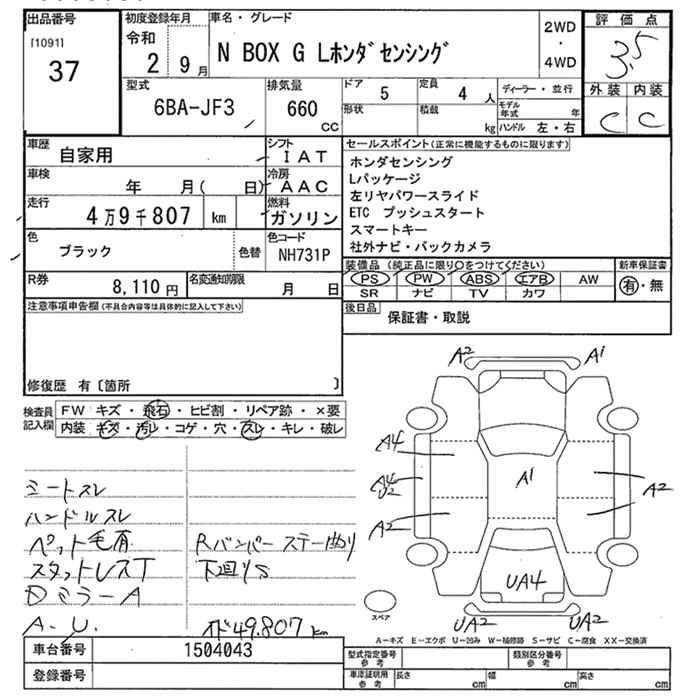 出品番号
[1091]
37
初度登録年月
令和
2 9月
車名・グレード
N BOX G Lホンダセンシング
2WD
・
4WD
評価点
3.5
外装 内装
C C
型式
6BA-JF3
排気量
660
cc
ドア 5
定員 4 人
形状
積載 kg
ディーラー・並行
モデル年式 年
ハンドル 左・右
車歴
自家用
シフト
IAT
車検
年 月( 日)
冷房
AAC
走行
4万9千807 km
燃料
ガソリン
色
ブラック
色替
色コード
NH731P
R券
8,110円
名変通知期限
月 日
セールスポイント(正常に機能するものに限ります)
ホンダセンシング
Lパッケージ
左リヤパワースライド
ETC プッシュスタート
スマートキー
社外ナビ・バックカメラ
装備品(純正品に限り○をつけてください)
PS PW ABS エアB AW
SR ナビ TV カワ
新車保証書
有・無
後日品
保証書・取説
注意事項申告欄(不具合内容等は具体的に記入して下さい)
修復歴 有〔箇所 〕
検査員
記入欄
FW キズ・飛石・ヒビ割・リペア跡・×要
内装 キズ・汚レ・コゲ・穴・スレ・キレ・破レ
シートスレ
ハンドルスレ
ペット毛有
スタットレスT
DミラーA
A-U.
Rバンパーステー曲り
下回りS
オド49.807km
A2 A1
A4
A4
U2
A2
A1
A2
UA4
UA2 UA2
スペア
A-キズ E-エクボ U-凹み W-補修跡 S-サビ C-腐食 XX-交換済
車台番号
1504043
登録番号
型式指定番号
参考
類別区分番号
参考
車庫証明用
参考
長さ cm
幅 cm
高さ cm